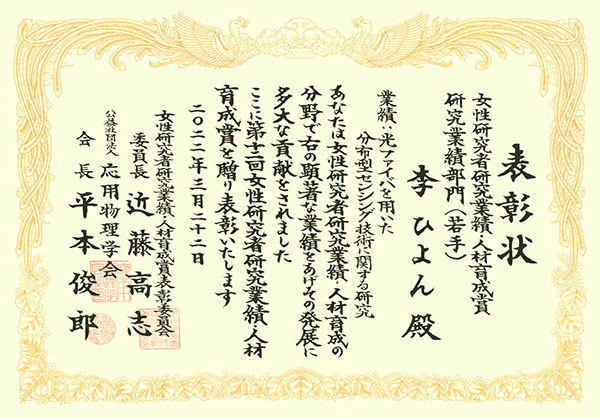 表彰状
女性研究者研究業績・人材育成賞
研究業績部門(若手)
李 ひよん 殿
業績:光ファイバを用いた
分布型センシング技術に関する研究
あなたは女性研究者研究業績・人材育成の
分野で右の顕著な業績をあげその発展に
多大な貢献をされました
ここに第十二回女性研究者研究業績・人材
育成賞を贈り表彰いたします
二〇二二年三月二十二日
女性研究者研究業績・人材育成賞表彰委員会
委員長 近藤高志
公益社団法人 応用物理学会
会長 平本俊郎